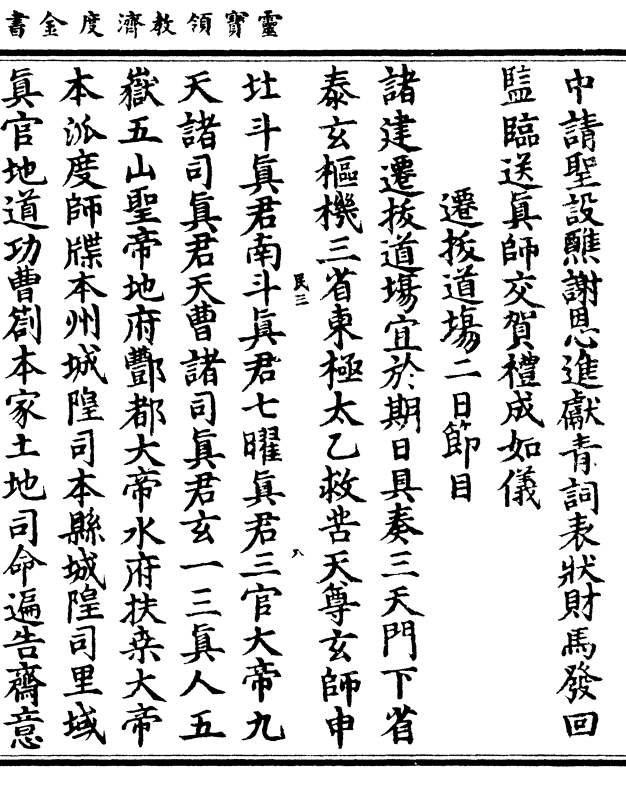 靈寶領教濟度金書
中請聖設醮謝恩進獻青詞表狀財馬發回
監臨送眞師交賀禮成如儀
遷拔道場二日節目
諸建遷拔道場宜於期日具奏三天門下省
泰玄樞機三省東極太乙救苦天尊玄師申
民三
八
北斗眞君南斗眞君七曜眞君三官大帝九
天諸司眞君天曹諸司眞君玄一三眞人五
嶽五山聖帝地府酆都大帝水府扶桒大帝
本派度師牒本州城隍司本縣城隍司里域
眞官地道功曹劄本家土地司命遍告齋意